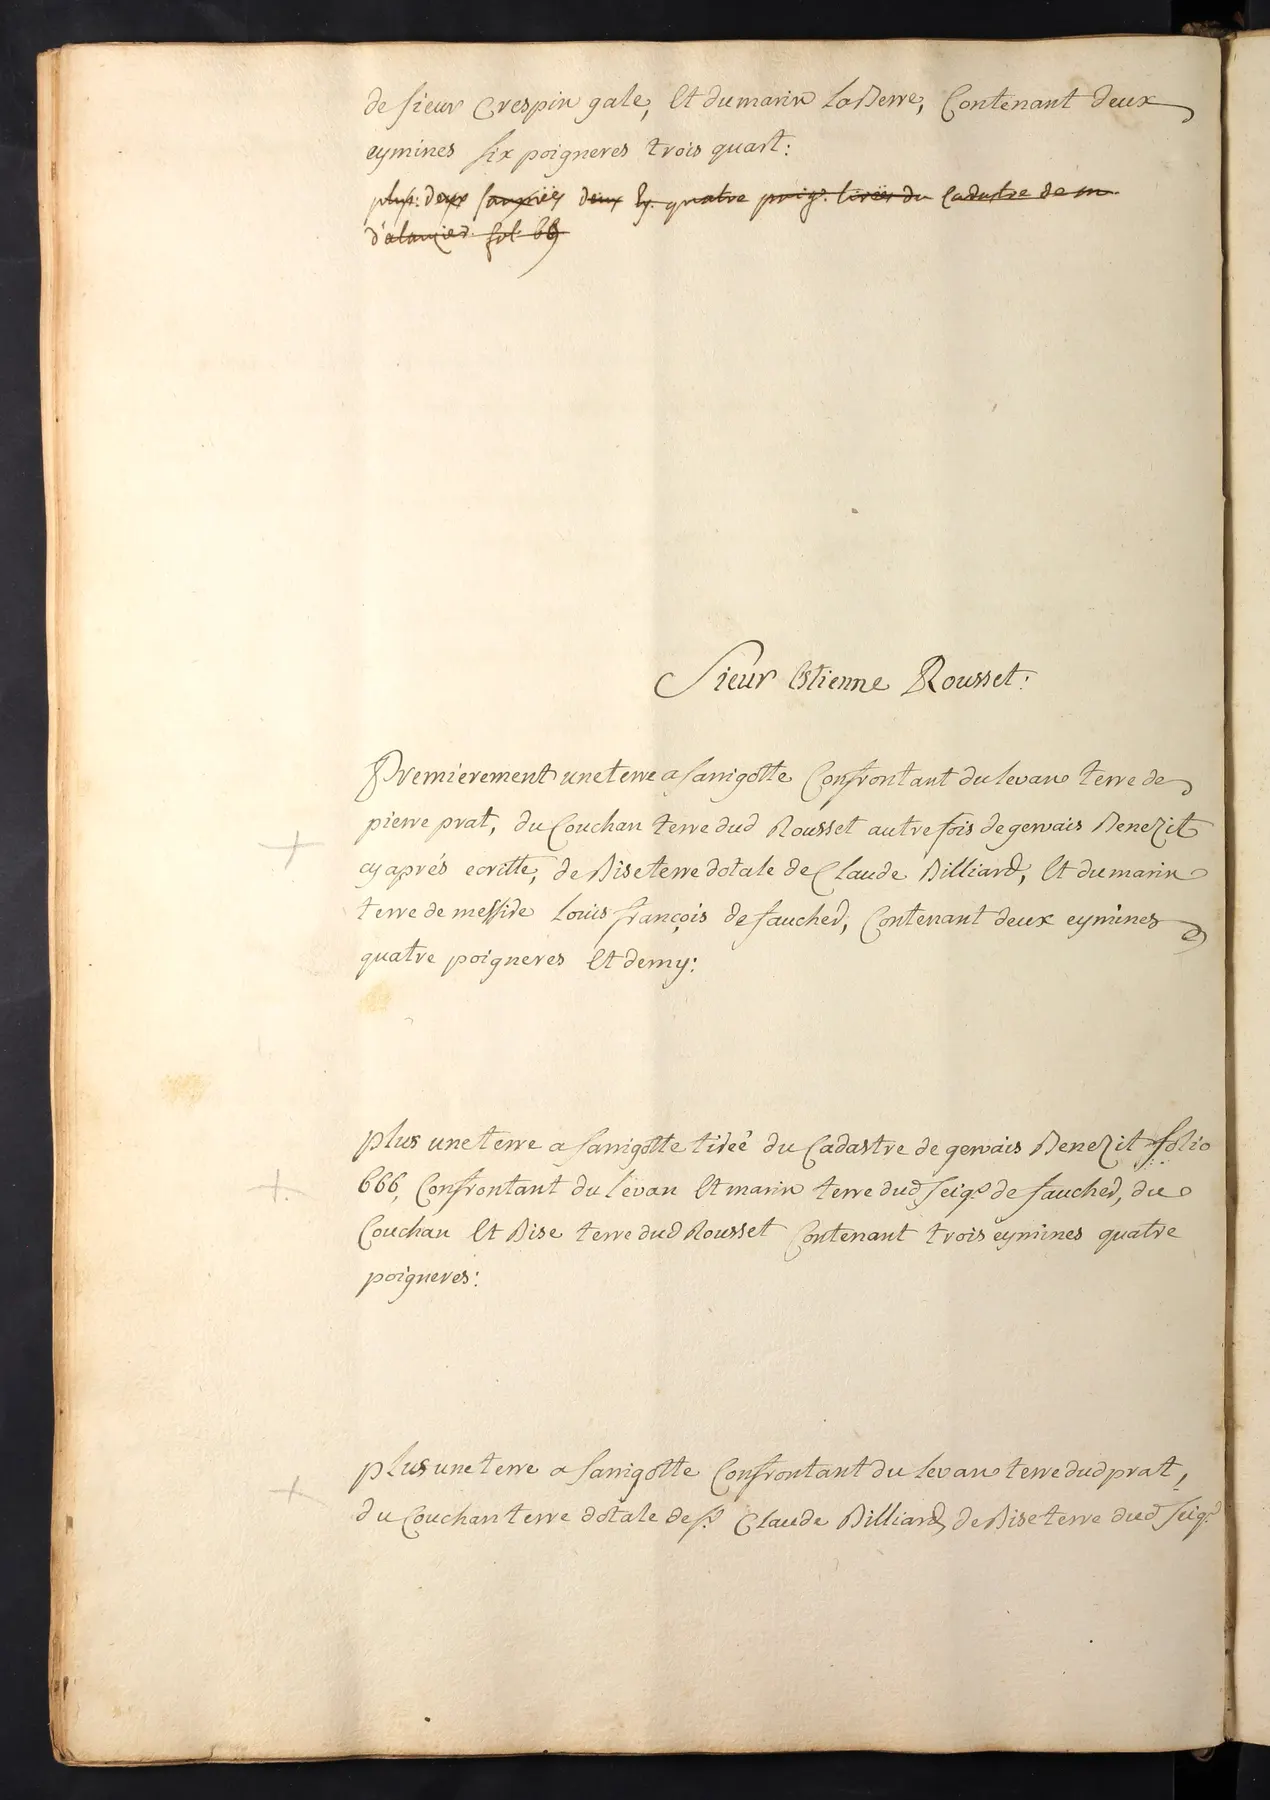 de sieur Crespin gale, Et du marin la Derre, Contenant deux
eymines six poigneres trois quart:
plus: deux deux Ey. quatre poig. tirées du Cadastre de m
fol. 66
Sieur Estienne Rousset:
Premierement une terre a sarrigotte Confrontant du levan terre de
pierre prat, du Couchan terre dud Rousset autre fois de gervais Benezit
cy aprés ecritte, de Bise terre dotale de Claude Billiard, Et du marin
terre de messire Louis françois de faucher, Contenant deux eymines
quatre poigneres Et demy:
plus une terre a sarrigotte tirée du Cadastre de gervais Benezit folio
666, Confrontant du levan Et marin terre dud seigr de faucher, du
Couchan Et Bise terre dud Rousset Contenant trois eymines quatre
poigneres:
plus une terre a sarrigotte Confrontant du levan terre dud prat,
du Couchan terre dotale de sr Claude Billiard, de Bise terre dud seigr